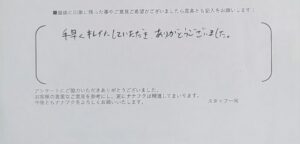 ■最後に印象に残った事やご意見ご希望がございましたら是非とも記入をお願いします!
手早くキレイにしていただき ありがとうございました。
アンケートにご協力いただきありがとうございました。
お客様の貴重なご意見を参考にし、更にナナフクは精進してまいります。
今後ともナナフクをよろしくお願いいたします。
スタッフ一同